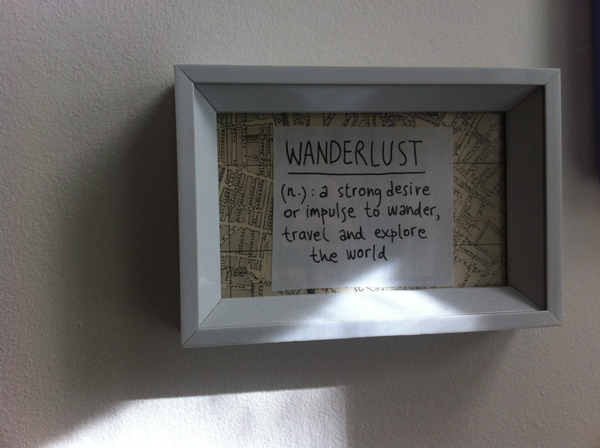 WANDERLUST
(n.): a strong desire
or impulse to wander,
travel and explore
the world